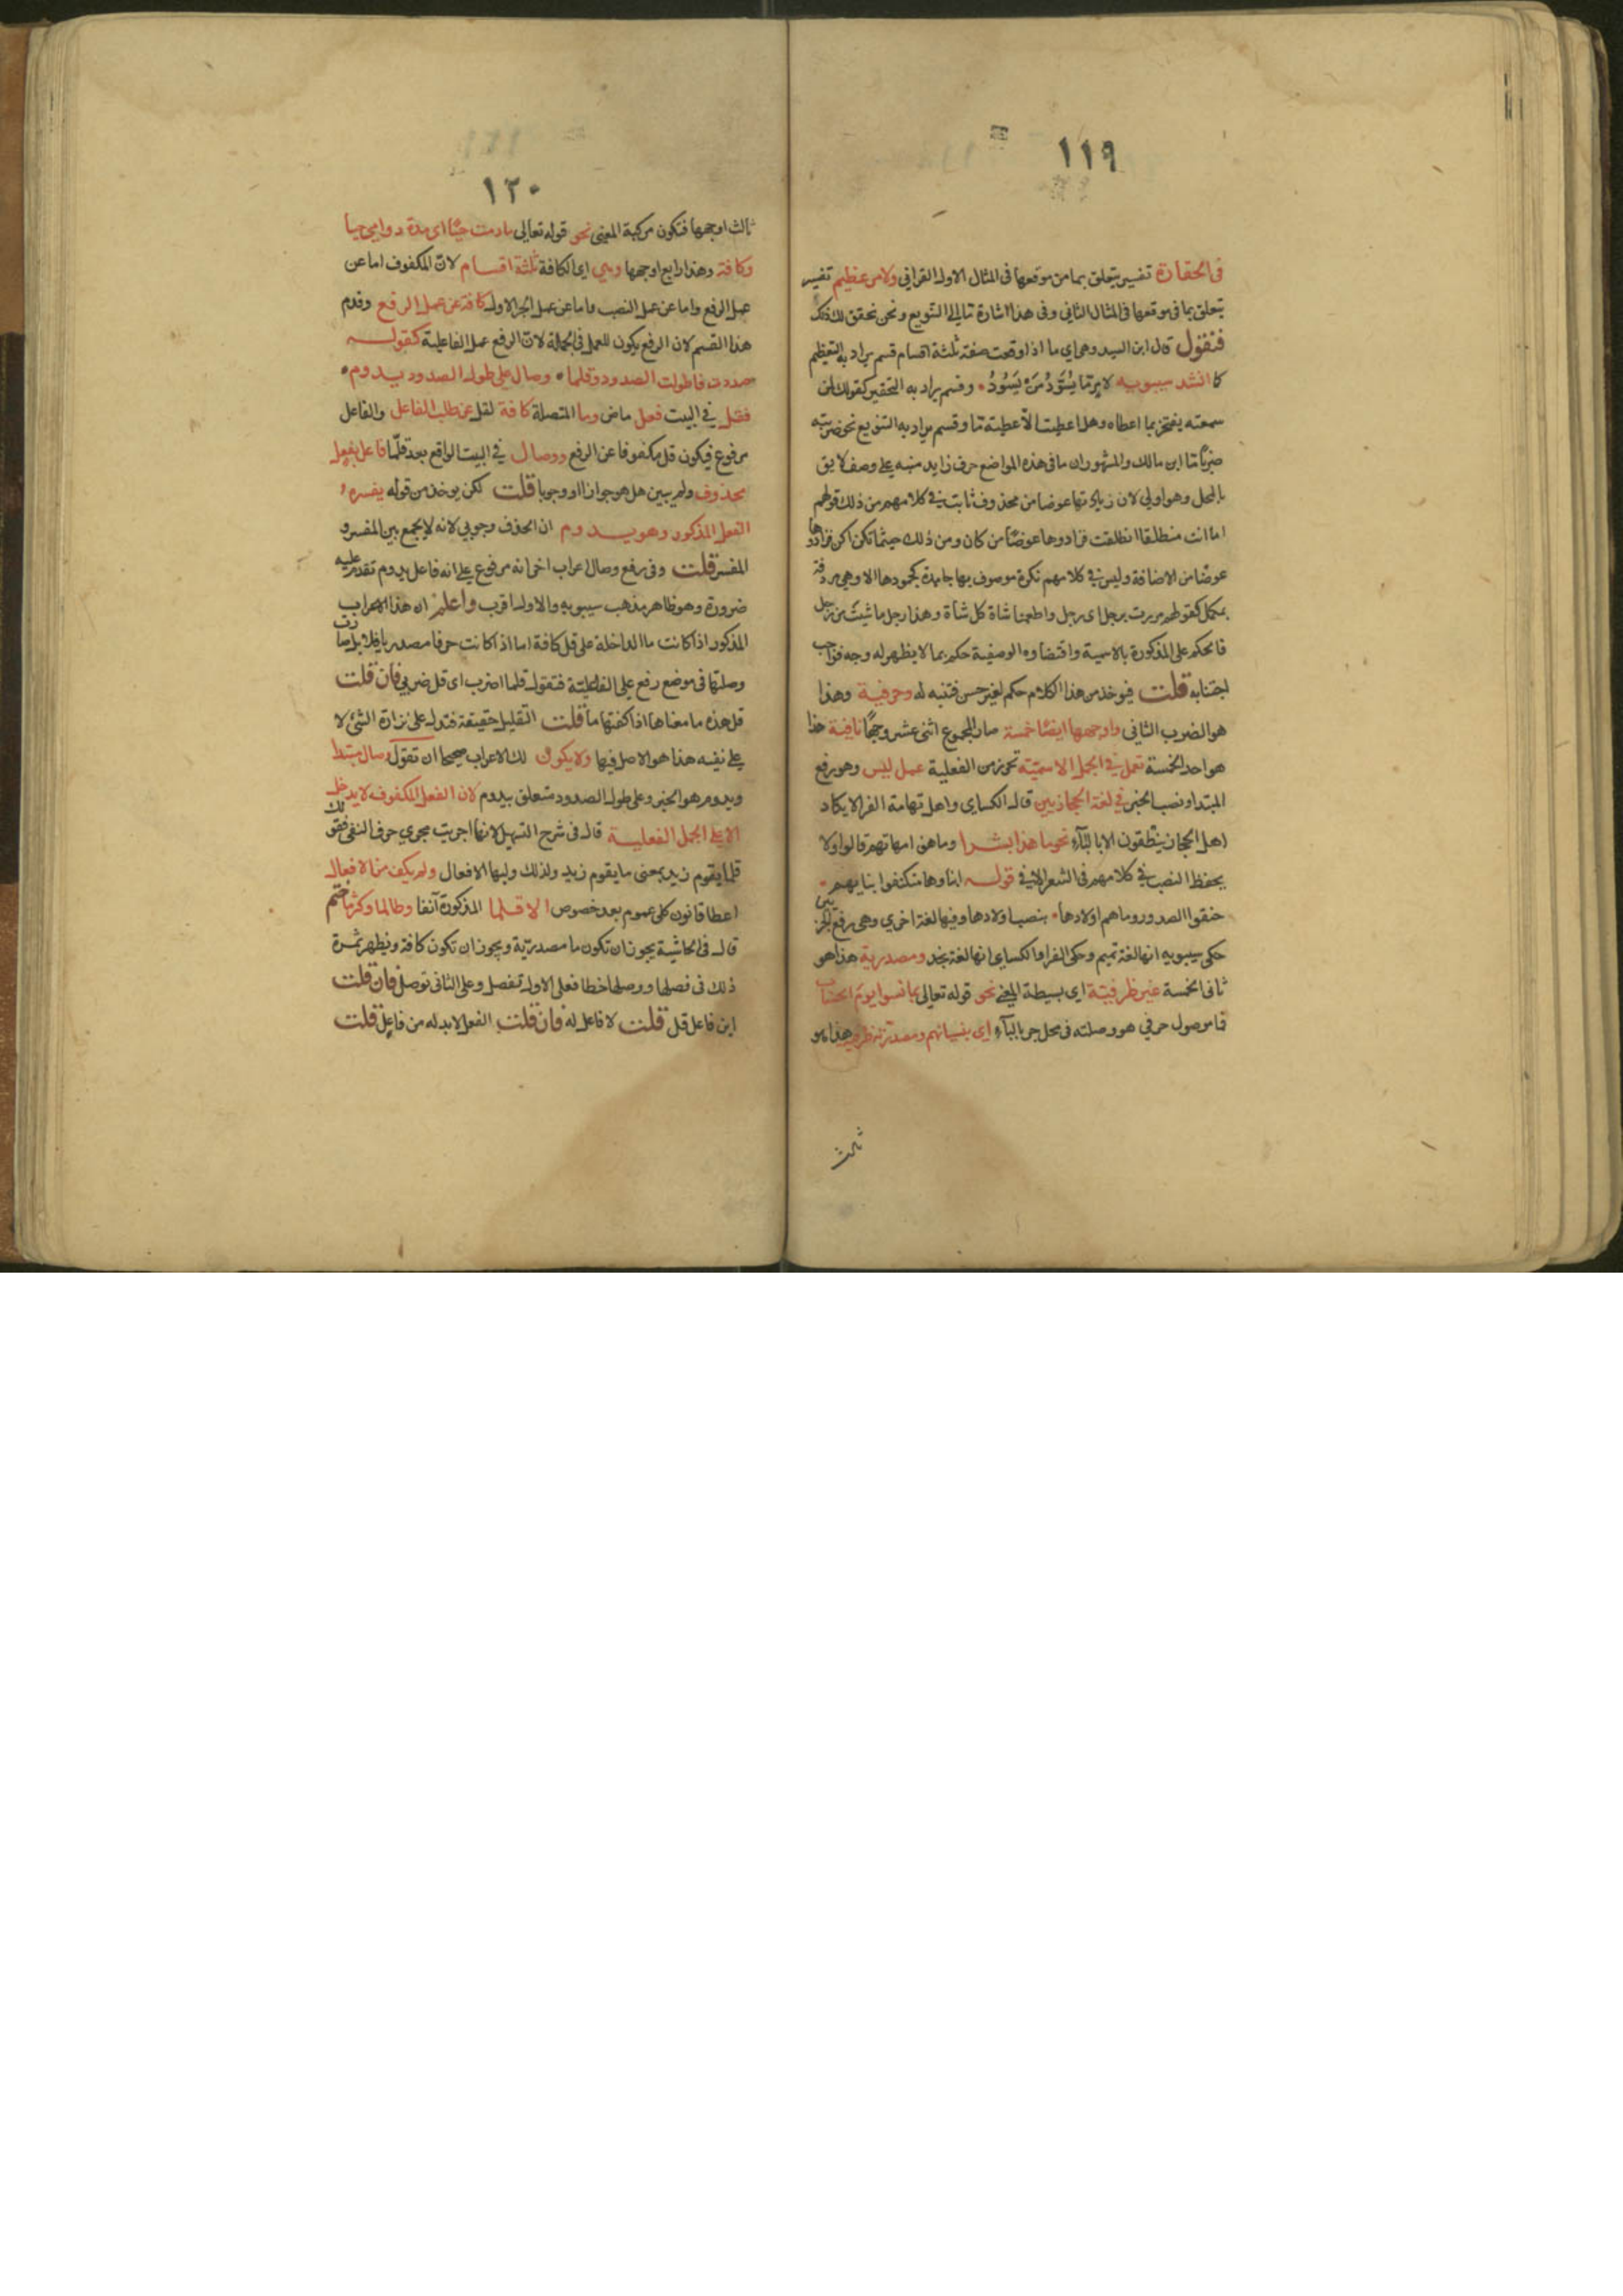 ١١٩
في الحقارة تفسير يتعلق بما من موقعها في المثال الاول القرافي ولامر عظيم تفسير
يتعلق بما في موقعها في المثال الثاني وفي هذا اشارة تا الى التنويع ونحن نحقق لك ذلك
فنقول قال ابن السيد وهي اي ما اذا وقعت صفة ثلثة اقسام قسم يراد به التعظيم
كما انشد سيبويه لامر ما يُسَوَّدُ مَنْ يَسُودُ وقسم يراد به التحقير كقولك لمن
سمعته يفتخر بما اعطاه وهل اعطيت الا عطية تا وقسم يراد به التنويع نحو ضربته
ضربًا تا ابن مالك والمشهور ان ما في هذه المواضع حرف زايد منبه على وصف لايق
بالمحل وهو اولى لان زيادتها عوضا من محذوف ثابت في كلامهم من ذلك قولهم
اما انت منطلقا انطلقت فزادوها عوضًا من كان ومن ذلك حيثما تكن اكن فزادوها
عوضًا من الاضافة وليس في كلامهم نكرة موصوف بها جامدة كجمودها الا وهي مردفة
بمكمل كقولهم مررت برجل اي رجل واطعمنا شاة كل شاة وهذا رجل ما شئت من رجل
فالحكم على المذكورة بالاسمية واقتضاوه الوصفية حكم بما لا يظهر له وجه فوجب
اجتنابه قلت فيوخذ من هذا الكلام حكم لغير حسن فتنبه له وحرفية وهذا
هو الضرب الثاني واوجهها ايضًا خمسة صار المجموع اثنى عشر وجهًا نافية هذا
هو احد الخمسة تعمل في الجمل الاسمية تحرز من الفعلية عمل ليس وهو رفع
المبتدا ونصب الخبر في لغة الحجازيين قال الكساي واهل تهامة الفرا لا يكاد
اهل الحجاز ينطقون الا بالبآء نحو ما هذا بشرا وما هن امهاتهم قالوا ولا
يحفظ النصب في كلامهم في الشعر الا في قوله ابناوها متكنفوا بنايهم
حنقوا الصدور وما هم اولادها بنصب اولادها وفيها لغة اخرى وهي رفع الجزئين
حكى سيبويه انها لغة تميم وحكى الفرا والكساي انها لغة نجد ومصدرية هذا هو
ثاني الخمسة غير ظرفية اي بسيطة المعنى نحو قوله تعالى بما نسوا يوم الحساب
فما موصول حرفي هو وصلته في محل جر بالبآء اي بنسيانهم ومصدرية ظرفية هذا هو
ثالث
١٢٠
ثالث اوجهها فتكون مركبة المعنى نحو قوله تعالى ما دمت حيًا اى مدة دوامي حيا
وكافة وهذا رابع اوجهها وهي اي الكافة ثلثة اقسام لان المكفوف اما عن
عمل الرفع واما عن عمل النصب واما عن عمل الجر الاول كافة عن عمل الرفع وقدم
هذا القسم لان الرفع يكون للعمل في الجملة لان الرفع عمل الفاعلية كقوله
صددت فاطولت الصدود وقلما وصال على طول الصدود يدوم
فقل في البيت فعل ماض وما المتصلة كافة لقل عن طلب الفاعل والفاعل
مرفوع فيكون قل مكفوفا عن الرفع ووصال في البيت الواقع بعد قلّما فاعل بفعل
محذوف ولم يبين هل هو جوازا او وجوبا قلت لكن يوخذ من قوله يفسره
الفعل المذكور وهو يدوم ان الحذف وجوبي لانه لا يجمع بين المفسر و
المفسر قلت وفي رفع وصال اعراب اخر انه مرفوع على انه فاعل يدوم تقدم عليه
ضرورة وهو ظاهر مذهب سيبويه والاول اقرب واعلم ان هذا الاعراب
المذكور اذا كانت ما الداخلة على قل كافة اما اذا كانت حرفا مصدريا فلا بل ما
وصلتها في موضع رفع على الفاعلية فتقول قلما اضرب اى قل ضربي فان قلت
قل هذه ما معناها اذا كفتها ما قلت التقليل حقيقة فتدل على نزارة الشئ لا
على نفيه هذا هو الاصل فيها ولا يكون لك الاعراب صحيحا ان تقول وصال مبتدا
ويدوم هو الخبر وعلى طول الصدود متعلق بيدوم لان الفعل المكفوف لا يدخل
الا على الجمل الفعلية قال في شرح التسهيل لانها اجريت مجرى حرف النفي فقولك
قلما يقوم زيد بمعنى ما يقوم زيد ولذلك وليها الافعال ولم يكف من الافعال
اعطا قانون كلي عموم بعد خصوص الا قلما المذكورة آنفا وطالما وكثر ما ختم
قال في الحاشية يجوز ان تكون ما مصدريّة ويجوز ان تكون كافة ويظهر ثمرة
ذلك في فصلها ووصلها خطا فعلى الاول تفصل وعلى الثاني توصل فان قلت
اين فاعل قل قلت لا فاعل له فان قلت الفعل لا بد له من فاعل قلت